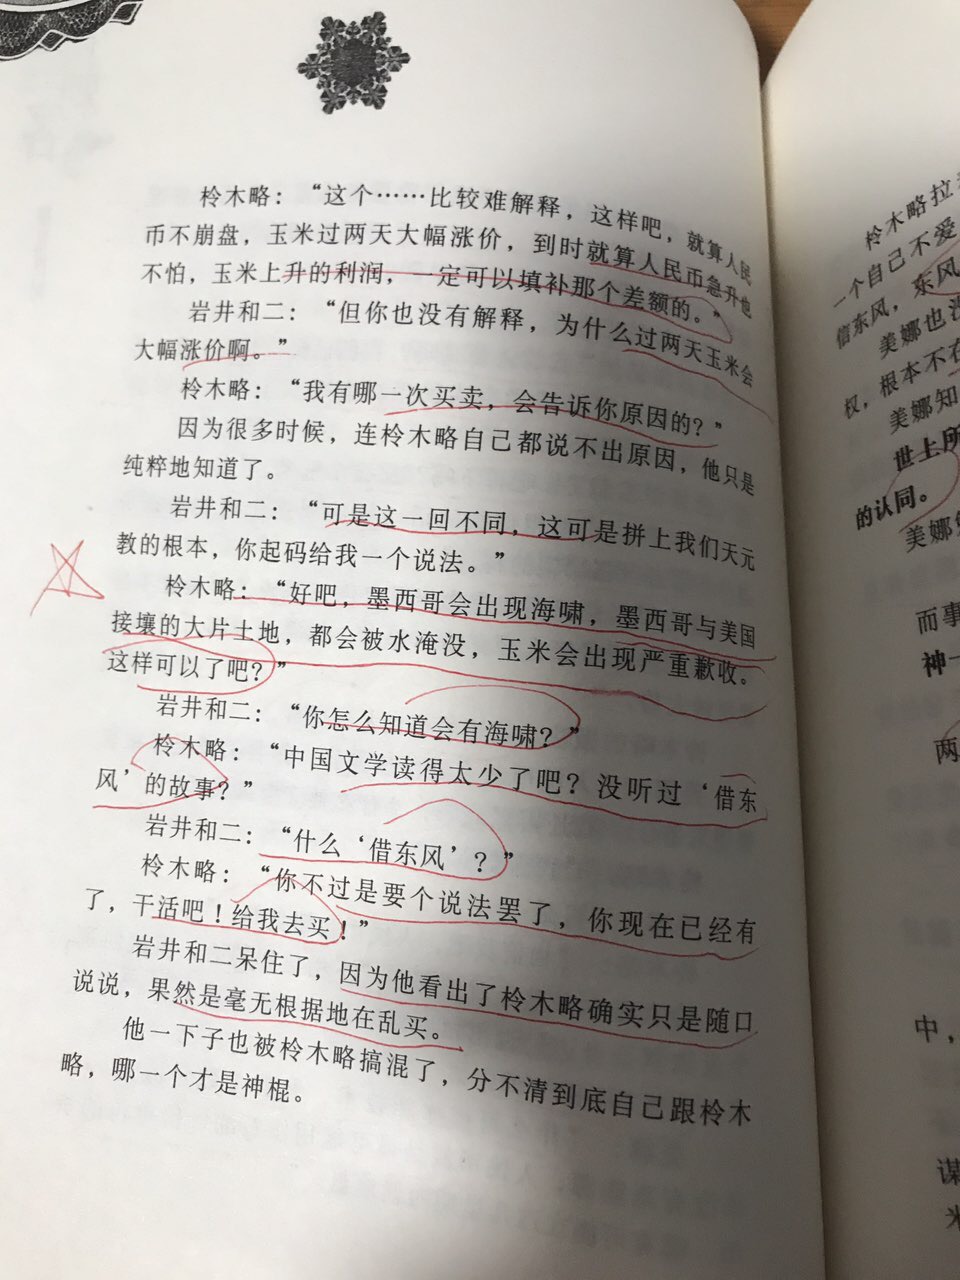 柃木略：“这个……比较难解释，这样吧，就算人民
币不崩盘，玉米过两天大幅涨价，到时就算人民币急升也
不怕，玉米上升的利润，一定可以填补那个差额的。”
岩井和二：“但你也没有解释，为什么过两天玉米会
大幅涨价啊。”
柃木略：“我有哪一次买卖，会告诉你原因的？”
因为很多时候，连柃木略自己都说不出原因，他只是
纯粹地知道了。
岩井和二：“可是这一回不同，这可是拼上我们天元
教的根本，你起码给我一个说法。”
柃木略：“好吧，墨西哥会出现海啸，墨西哥与美国
接壤的大片土地，都会被水淹没，玉米会出现严重歉收。
这样可以了吧？”
岩井和二：“你怎么知道会有海啸？”
柃木略：“中国文学读得太少了吧？没听过‘借东
风’的故事？”
岩井和二：“什么‘借东风’？”
柃木略：“你不过是要个说法罢了，你现在已经有
了，干活吧！给我去买！”
岩井和二呆住了，因为他看出了柃木略确实只是随口
说说，果然是毫无根据地在乱买。
他一下子也被柃木略搞混了，分不清到底自己跟柃木
略，哪一个才是神棍。
柃木略拉
一个自己不爱
信东风，东风
美娜也没
权，根本不在
美娜知
世上所
的认同。
美娜
而事
神一
两
中，
谋
米